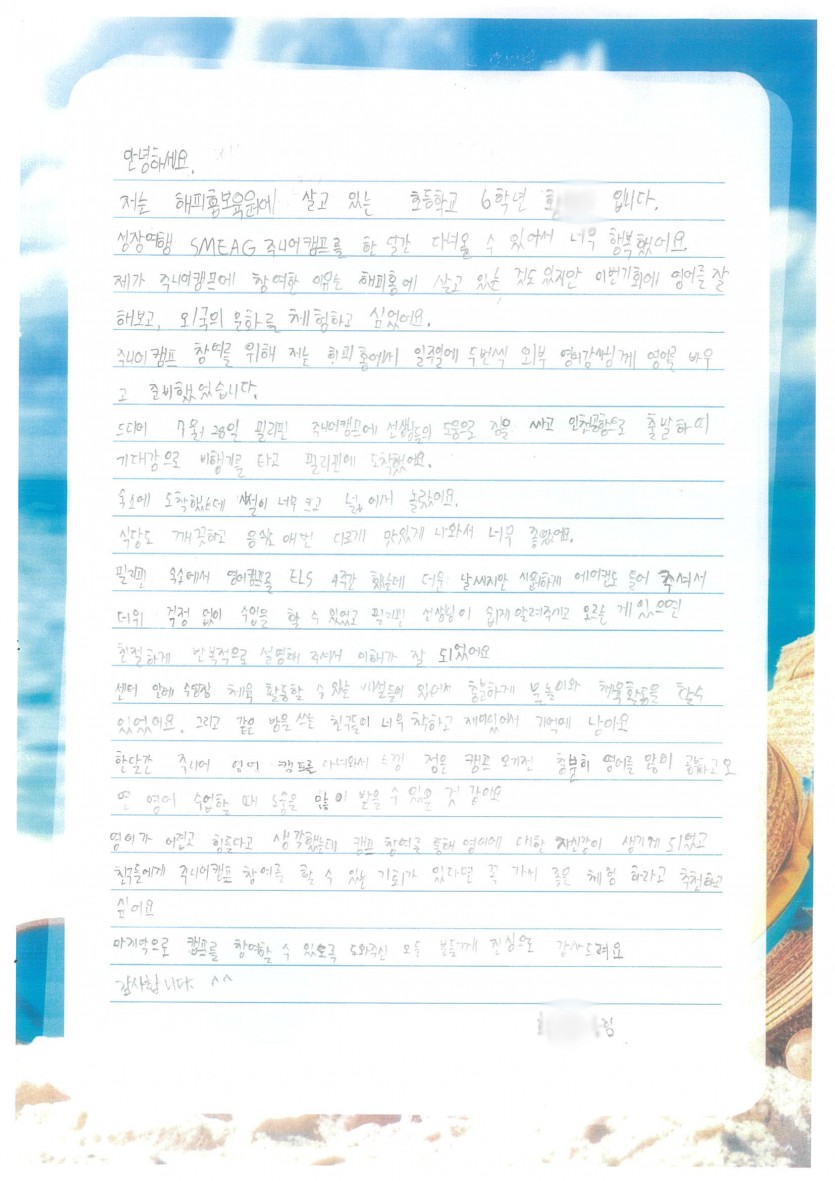 안녕하세요.
저는 해피홈보육원에 살고 있는 초등학교 6학년 입니다.
성장여행 SMEAG 주니어캠프를 한 달간 다녀올 수 있어서 너무 행복했어요.
제가 주니어캠프에 참여한 이유는 해피홈에 살고 있는 것도 있지만 이번기회에 영어를 잘
해보고, 외국의 문화를 체험하고 싶었어요.
주니어캠프 참여를 위해 저는 해피홈에서 일주일에 두번씩 외부 영어강사님께 영어를 배우
고 준비했었습니다.
드디어 7월 28일 필리핀 주니어캠프에 선생님들의 도움으로 짐을 싸고 인천공항으로 출발하여
기대감으로 비행기를 타고 필리핀에 도착했어요.
숙소에 도착했는데 시설이 너무 크고 넓어서 놀랐어요.
식당도 깨끗하고 음식도 매번 다르게 맛있게 나와서 너무 좋았어요.
필리핀 숙소에서 영어캠프로 ELS 4주간 했는데 더운 날씨지만 시원하게 에어컨도 틀어 주셔서
더위 걱정 없이 수업을 할 수 있었고 필리핀 선생님이 쉽게 알려주시고 모르는 게 있으면
친절하게 반복적으로 설명해 주셔서 이해가 잘 되었어요
센터 안에 수영장 체육 활동할 수 있는 시설들이 있어서 충분하게 물놀이와 체육활동을 할수
있었어요. 그리고 같은 방을 쓰는 친구들이 너무 착하고 재미있어서 기억에 남아요
한달간 주니어 영어 캠프를 다녀와서 느낀 점은 캠프 오기전 충분히 영어를 많이 공부하고 오
면 영어 수업할 때 도움을 많이 받을 수 있을 것 같아요
영어가 어렵고 힘들다고 생각했는데 캠프 참여를 통해 영어에 대한 자신감이 생기게 되었고
친구들에게 주니어캠프 참여를 할 수 있는 기회가 있다면 꼭 가서 좋은 체험 하라고 추천하고
싶어요
마지막으로 캠프를 참여할 수 있도록 도와주신 모든 분들께 진심으로 감사드려요
감사합니다. ^^